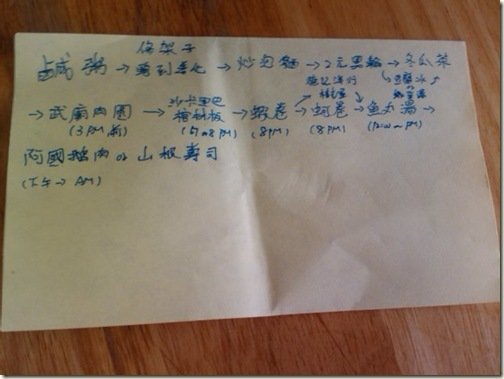 傢架子
鹹粥 → → 炒泡麵 → 2元黑輪 → 冬瓜茶
→ 武廟肉圓 → 沙卡里巴 棺材板 → 蝦卷 → 蚵卷 → 魚丸湯 →
(3PM前) (8PM) (8PM)
阿國鵝肉 or 山根壽司
(下午 → AM)